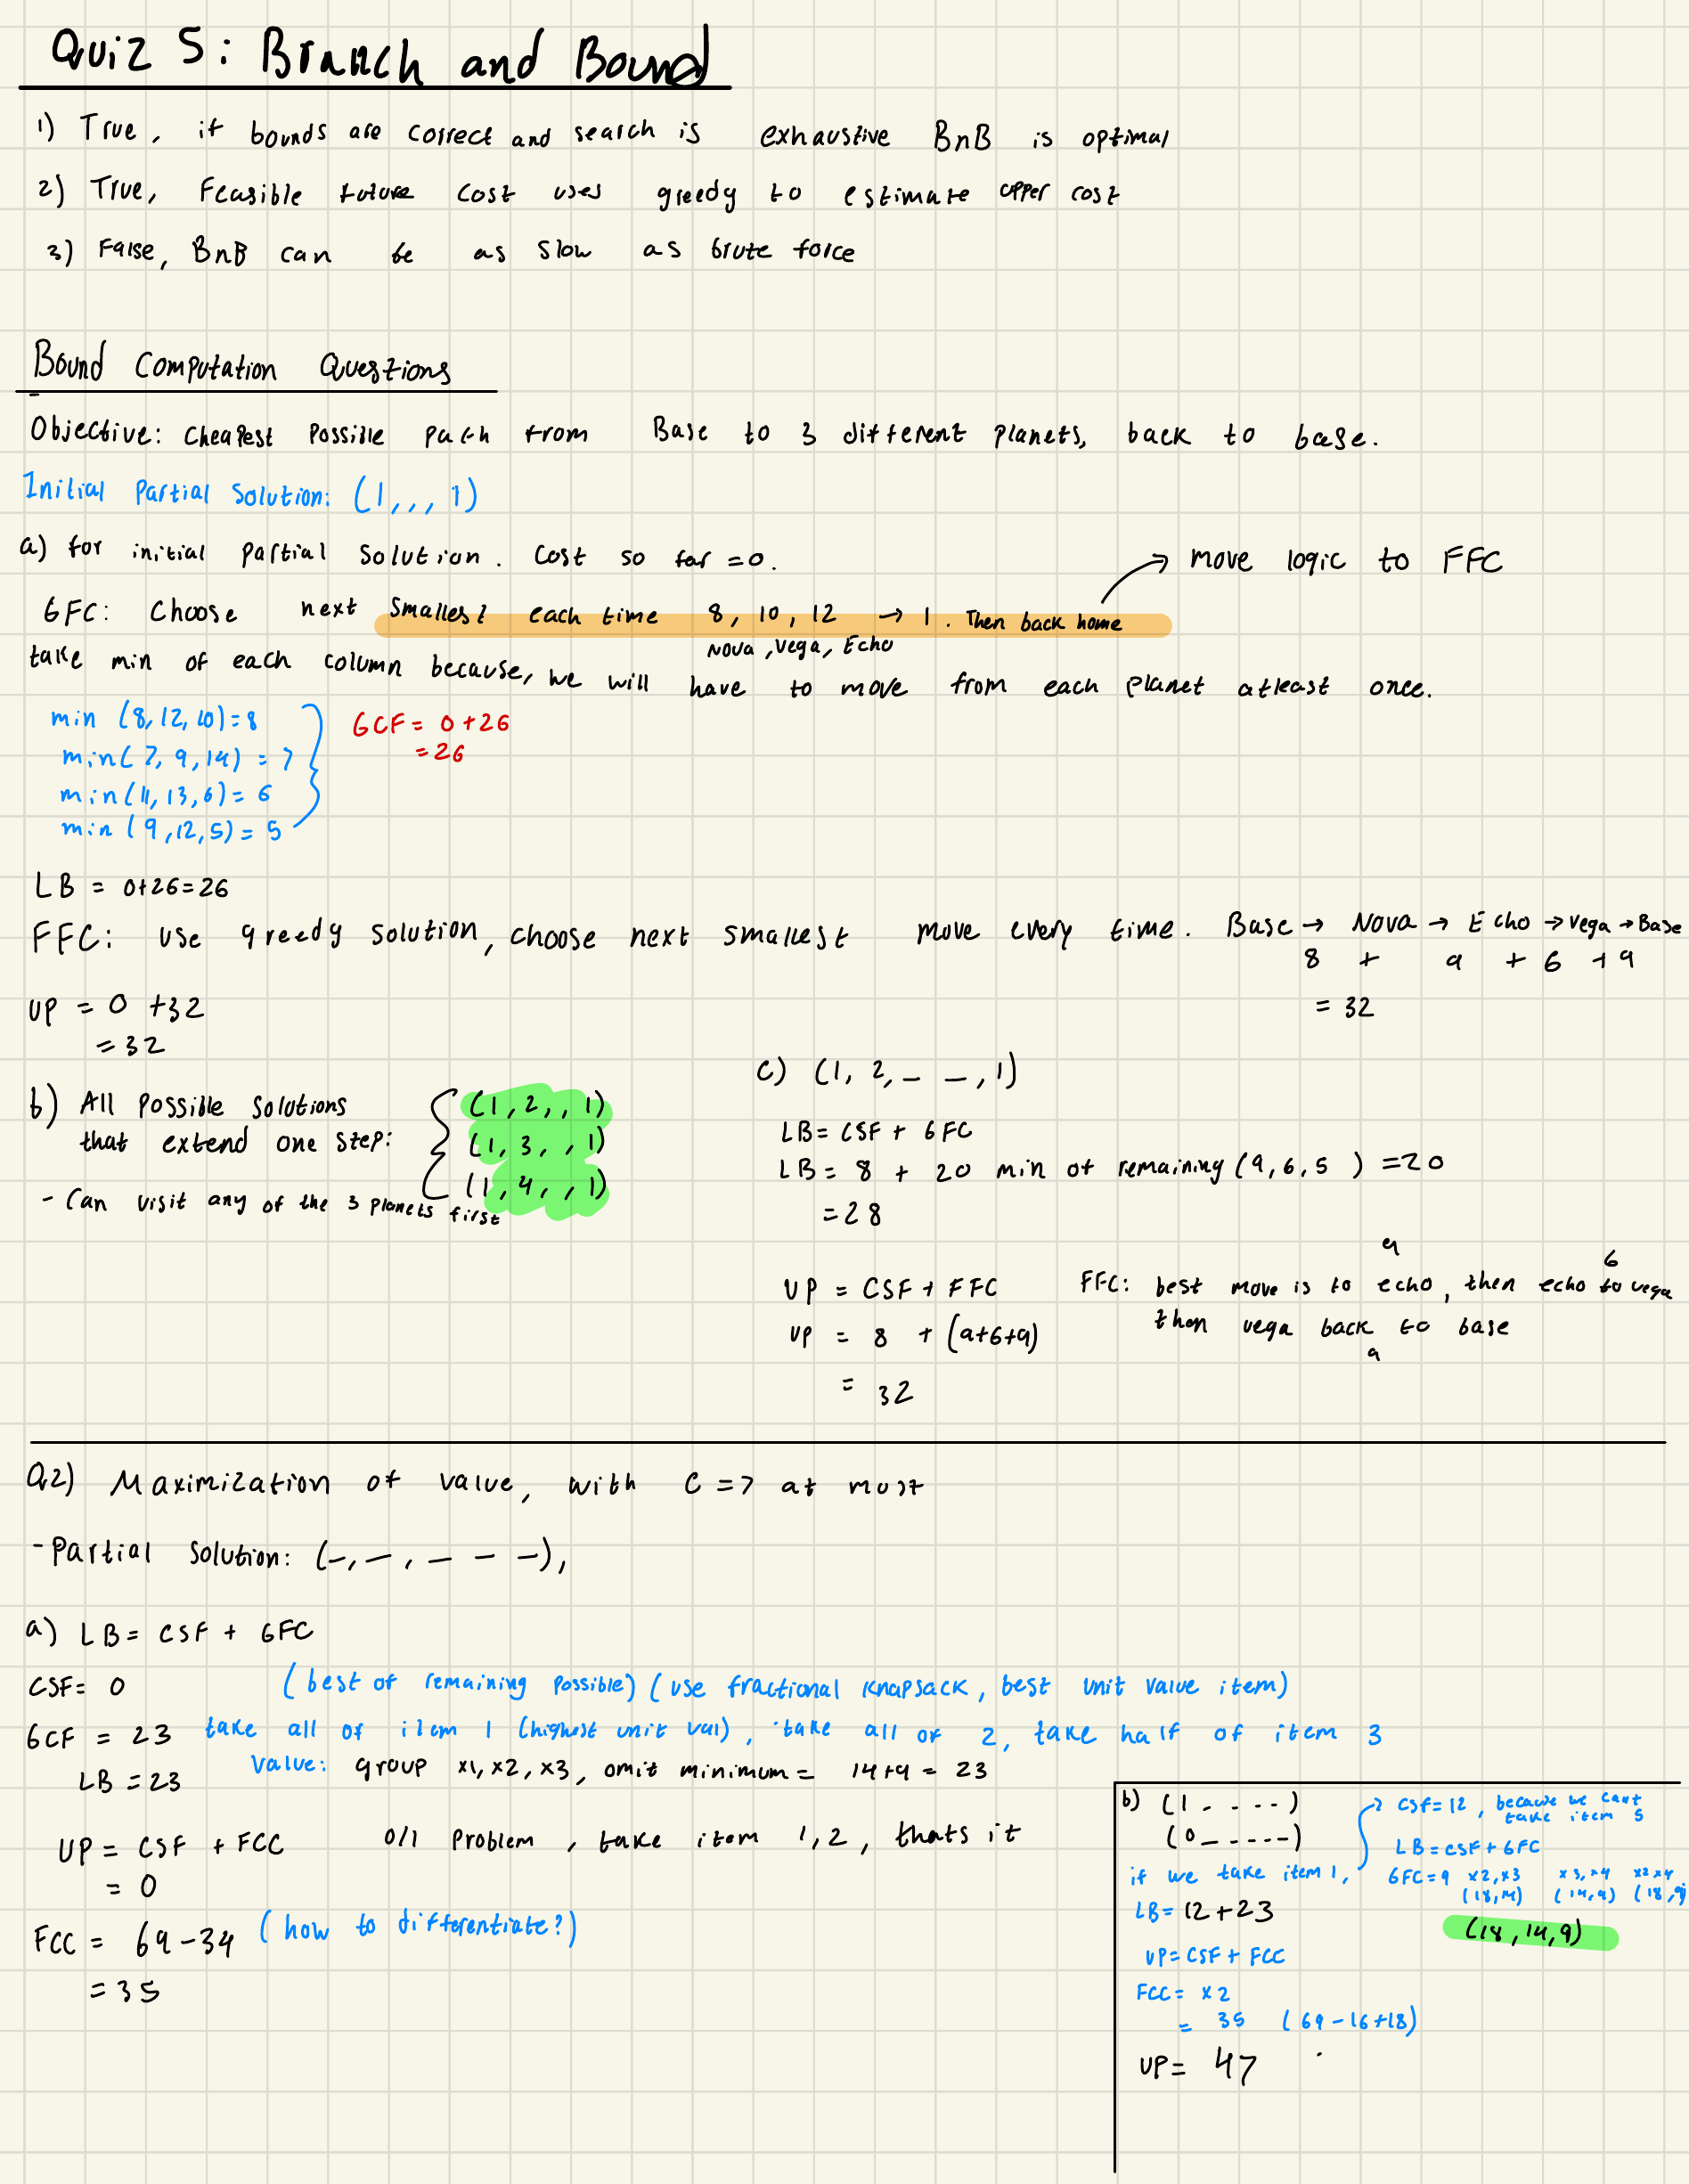 Quiz 5: Branch and Bound
1) True, if bounds are correct and search is exhaustive BnB is optimal
2) True, Feasible future cost uses greedy to estimate upper cost
3) False, BnB can be as slow as brute force
Bound Computation Questions
Objective: Cheapest Possible path from Base to 3 different planets, back to base.
Initial Partial Solution: (1,,, 1)
a) for initial partial solution. Cost so far = 0.
→ move logic to FFC
GFC: Choose next smallest each time 8, 10, 12 → 1. Then back home
Nova, Vega, Echo
take min of each column because, we will have to move from each planet atleast once.
min (8,12,10)=8
min(7, 9, 14) = 7
min(11, 13, 6) = 6
min (9,12,5) = 5
GCF = 0+26
= 26
LB = 0+26=26
FFC: use greedy solution, choose next smallest move every time. Base → Nova → Echo → Vega → Base
8 + 9 + 6 + 9
= 32
UP = 0 +32
= 32
b) All Possible Solutions
that extend one step:
(1, 2, , 1)
(1, 3, , 1)
(1, 4, , 1)
- Can visit any of the 3 planets first
c) (1, 2, _ _, 1)
LB = CSF + GFC
LB = 8 + 20 min of remaining (9, 6, 5 ) = 20
= 28
UP = CSF + FFC
UP = 8 + (9+6+9)
= 32
9
6
FFC: best move is to echo, then echo to vega
then vega back to base
9
Q2) Maximization of value, with C = 7 at most
- Partial Solution: (_, _, _ _ _),
a) LB = CSF + GFC
CSF = 0
(best of remaining possible) (use fractional knapsack, best unit value item)
GCF = 23 take all of item 1 (highest unit val), take all of 2, take half of item 3
LB = 23
value: group x1, x2, x3, omit minimum = 14+9 = 23
UP = CSF + FCC
0/1 problem, take item 1,2, thats it
= 0
FCC = 69-34 (how to differentiate?)
= 35
b) (1 _ _ _ _)
(0 _ _ _ _ _)
if we take item 1,
→ CSF=12, because we cant
take item 5
LB = CSF + GFC
GFC=9 x2,x3 x3,x4 x2 x4
(18,14) (14,9) (18,9)
LB= 12+23
(18, 14, 9)
UP = CSF + FCC
FCC = x2
= 35 (69-16+18)
UP = 47